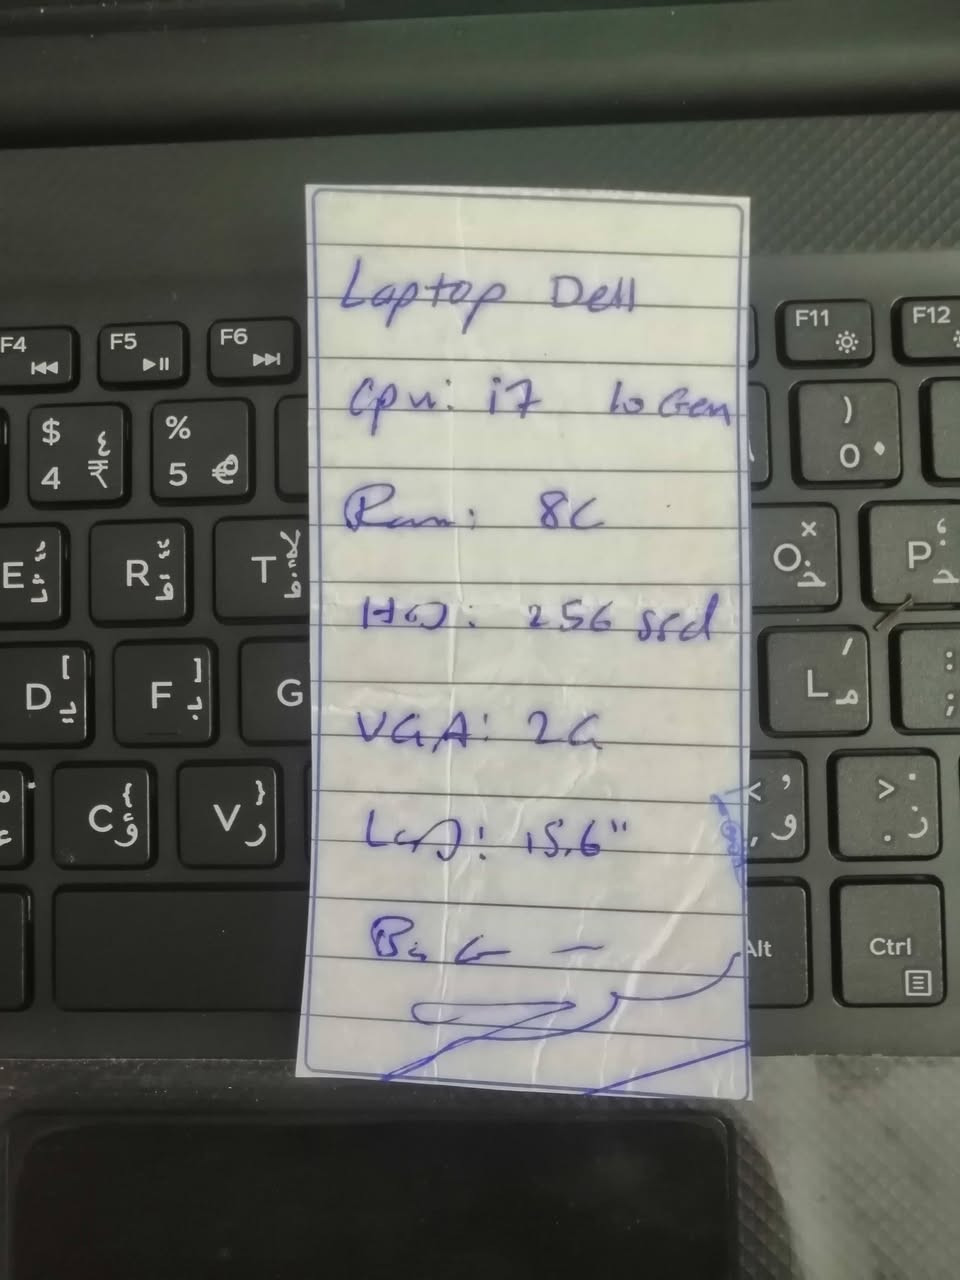 Laptop Dell
Cpu: i7 10 Gen
Ram: 8G
HD: 256 ssd
VGA: 2G
LCD: 15.6"
F4 F5 F6 F11 F12
$ ٤ % ) 
4 ₹ 5 € 0 ٠
E R T O خ P ح
D ي F ب G L م : ;
C ؤ V ر < و , > ز .
Alt Ctrl